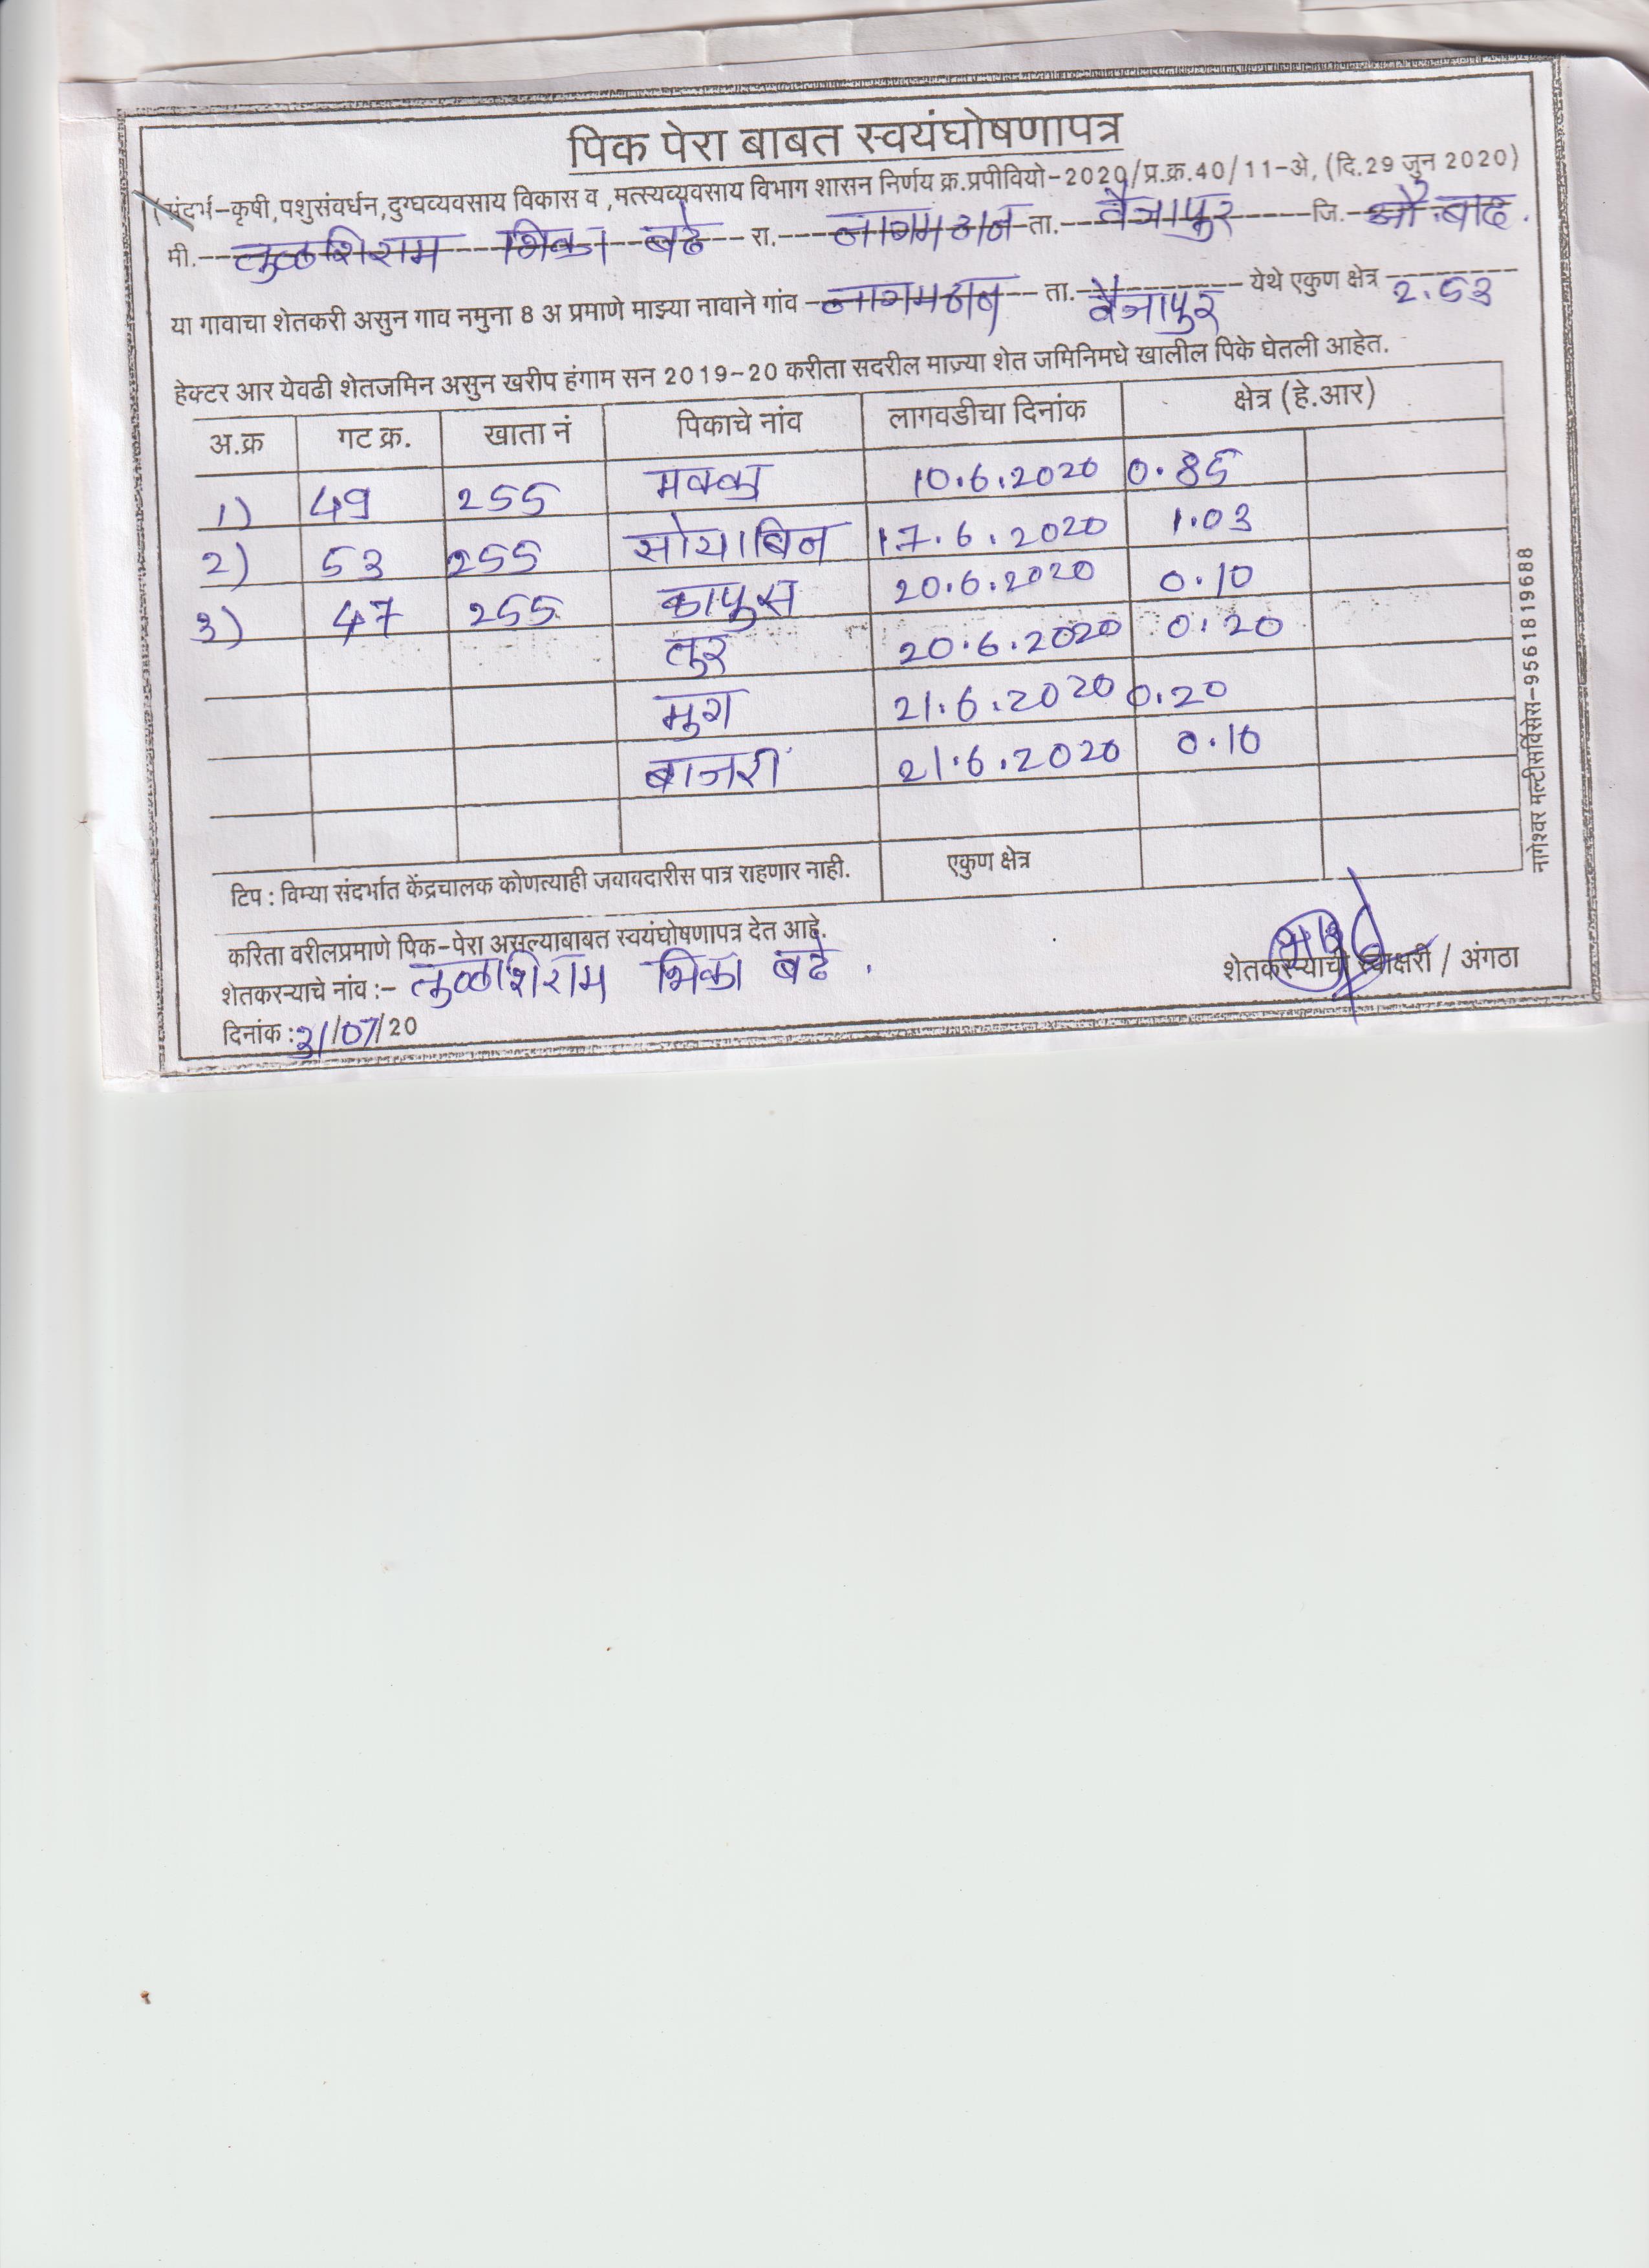 पिक पेरा बाबत स्वयंघोषणापत्र
(संदर्भ-कृषी,पशुसंवर्धन,दुग्घव्यवसाय विकास व ,मत्स्यव्यवसाय विभाग शासन निर्णय क्र.प्रपीवियो-2020/प्र.क्र.40/11-अे, (दि.29 जुन 2020)
मी. तुळशिराम भिका बढे रा. नागमठान ता. वैजापुर जि. औ.बाद.
या गावाचा शेतकरी असुन गाव नमुना 8 अ प्रमाणे माझ्या नावाने गांव नागमठाण ता. वैजापुर येथे एकुण क्षेत्र 2.53
हेक्टर आर येवढी शेतजमिन असुन खरीप हंगाम सन 2019-20 करीता सदरील माज्या शेत जमिनिमधे खालील पिके घेतली आहेत.
अ.क्र गट क्र. खाता नं पिकाचे नांव लागवडीचा दिनांक क्षेत्र (हे.आर)
1) 49 255 मक्का 10.6.2020 0.85
2) 53 255 सोयाबिन 17.6.2020 1.03
3) 47 255 कापुस 20.6.2020 0.10
तुर 20.6.2020 0.20
मुग 21.6.2020 0.20
बाजरी 21.6.2020 0.10
टिप : विम्या संदर्भात केंद्रचालक कोणत्याही जवावदारीस पात्र राहणार नाही. एकुण क्षेत्र
करिता वरीलप्रमाणे पिक-पेरा असल्याबाबत स्वयंघोषणापत्र देत आहे.
शेतकऱ्याचे नांव :- तुळाशिराम भिका बढे .
शेतकऱ्याची स्वाक्षरी / अंगठा
दिनांक :31/07/20
नागेश्वर मल्टीसर्विसेस-9561819688